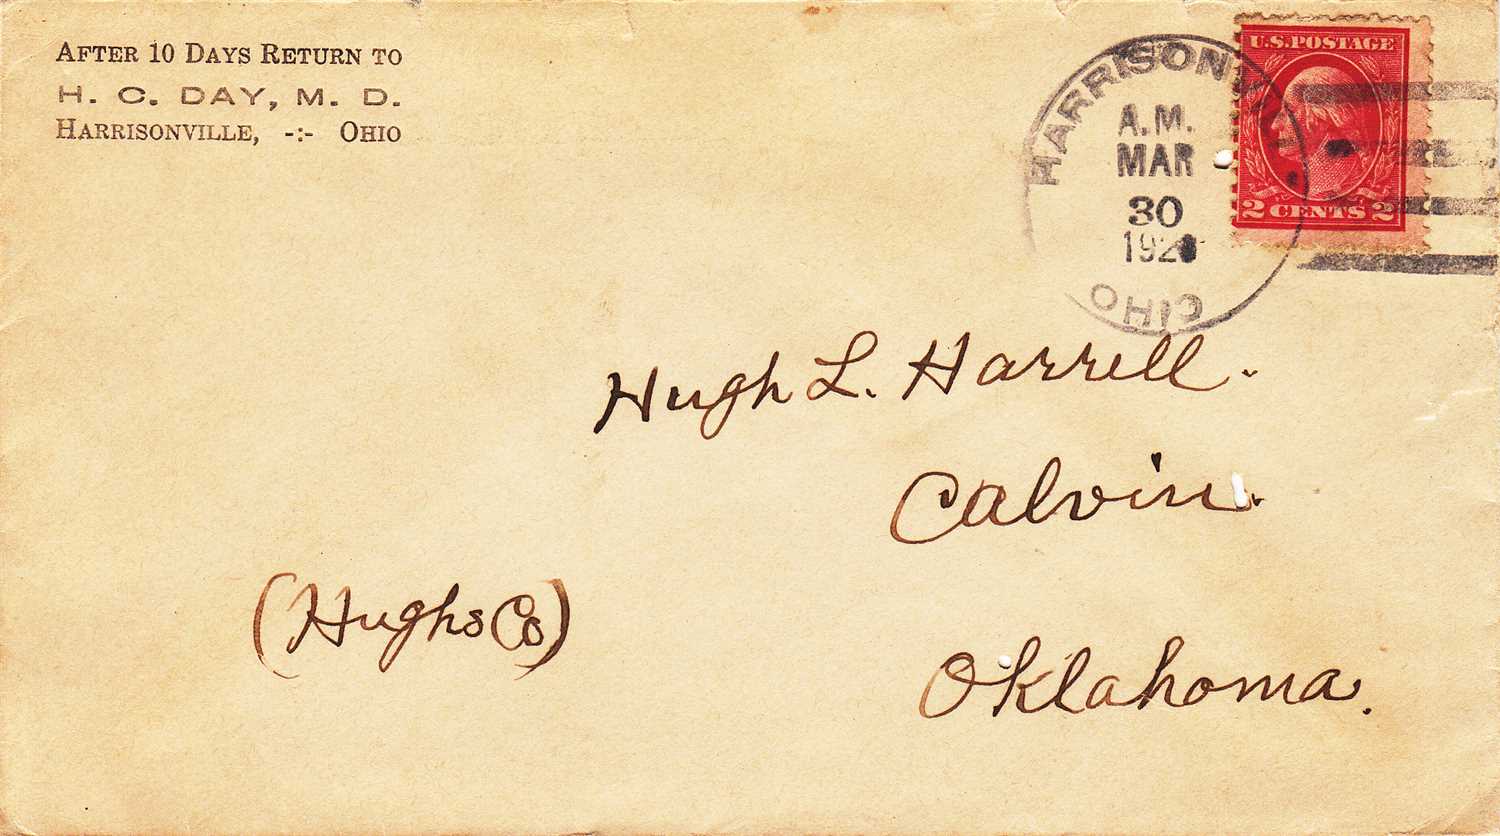 AFTER 10 DAYS RETURN TO
H. C. DAY, M. D.
HARRISONVILLE, -:- OHIO
U.S. POSTAGE
2 CENTS 2
A.M.
MAR
30
OHIO
Hugh L. Harrell.
Calvin.
(Hughs Co)
Oklahoma.